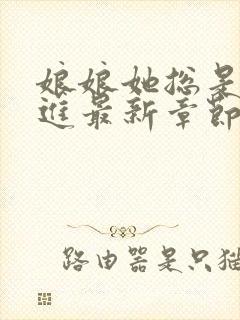 娘娘她总是
进最新章节
路由器是只猫